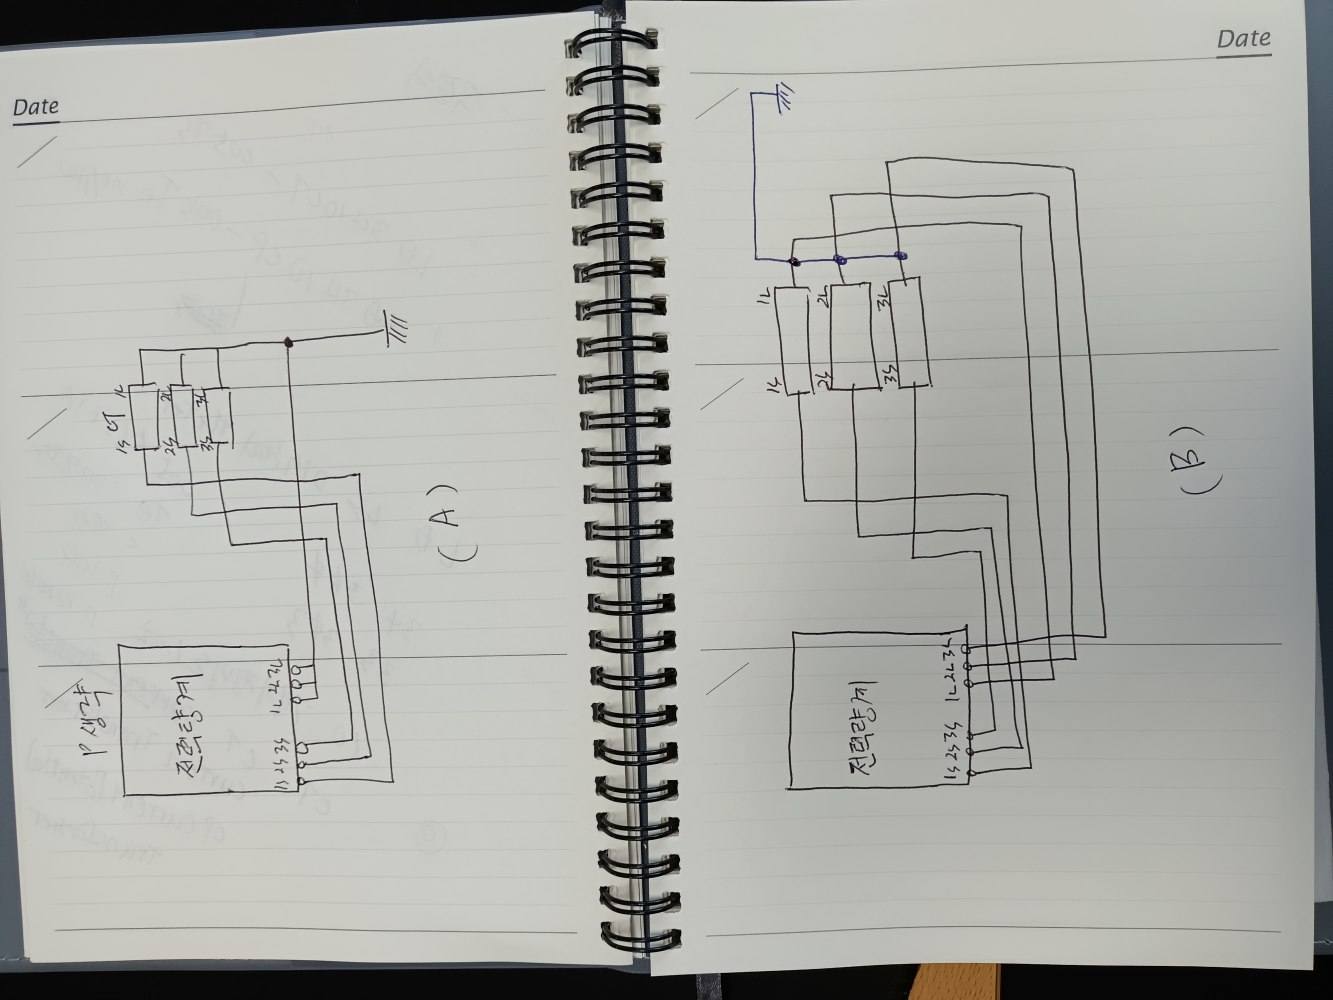 Date
1L 2L 3L
CT
1S 2S 3S
(A)
P 생략
전력량계
1L 2L 3L
1S 2S 3S
Date
1L 2L 3L
1S 2S 3S
(B)
전력량계
1L 2L 3L
1S 2S 3S